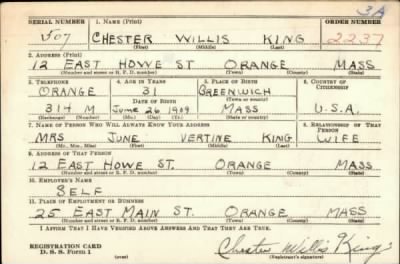 3A
SERIAL NUMBER 1. NAME (Print) ORDER NUMBER
507 CHESTER WILLIS KING 2237
(First) (Middle) (Last)
2. ADDRESS (Print)
12 EAST HOWE ST ORANGE MASS
(Number and street or R. F. D. number) (Town) (County) (State)
3. TELEPHONE 4. AGE IN YEARS 5. PLACE OF BIRTH 6. COUNTRY OF CITIZENSHIP
ORANGE 31 GREENWICH
DATE OF BIRTH (Town or county)
314 M June 26 1909 MASS U.S.A.
(Exchange) (Number) (Mo.) (Day) (Yr.) (State or country)
7. NAME OF PERSON WHO WILL ALWAYS KNOW YOUR ADDRESS 8. RELATIONSHIP OF THAT PERSON
MRS JUNE VERTINE KING WIFE
(Mr., Mrs., Miss) (First) (Middle) (Last)
9. ADDRESS OF THAT PERSON
12 EAST HOWE ST. ORANGE MASS
(Number and street or R. F. D. number) (Town) (County) (State)
10. EMPLOYER'S NAME
SELF
11. PLACE OF EMPLOYMENT OR BUSINESS
25 EAST MAIN ST. ORANGE MASS
(Number and street or R. F. D. number) (Town) (County) (State)
I AFFIRM THAT I HAVE VERIFIED ABOVE ANSWERS AND THAT THEY ARE TRUE.
REGISTRATION CARD
D. S. S. Form 1 (over) Chester Willis King
(Registrant's signature)